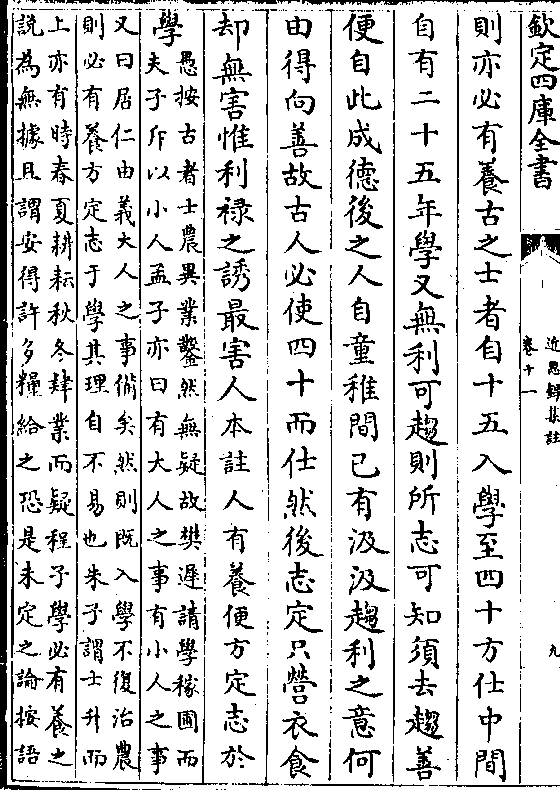 欽定四庫全書
近思錄集註
卷十一
九
則亦必有養古之士者自十五入學至四十方仕中間
自有二十五年學又無利可趨則所志可知須去趨善
便自此成德後之人自童稚間已有汲汲趨利之意何
由得向善故古人必使四十而仕然後志定只營衣食
却無害惟利祿之誘最害人本註人有養便方定志於
學
愚按古者士農異業鑿然無疑故樊遲請學稼圃而
夫子斥以小人孟子亦曰有大人之事有小人之事
又曰居仁由義大人之事備矣然則既入學不復治農
則必有養方定志于學其理自不易也朱子謂士升而
上亦有時春夏耕耘秋冬肄業而疑程子學必有養之
說為無據且謂安得許多糧給之恐是未定之論按語